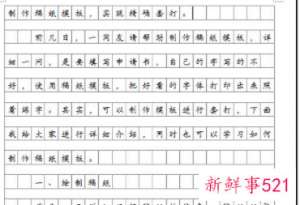 制作稿纸模板，实现精确套打。
前几日，一同友请帮助制作稿纸模板，详
细一问，是要填写申请书，自己的字写的不
好，使用稿纸模板，把好看的字体打印出来照
着练字。其实，可以制作模板进行套打，下面
我给大家进行详细介绍，同时也可以学习如何
制作稿纸模板。
一、绘制稿纸
新鲜事521